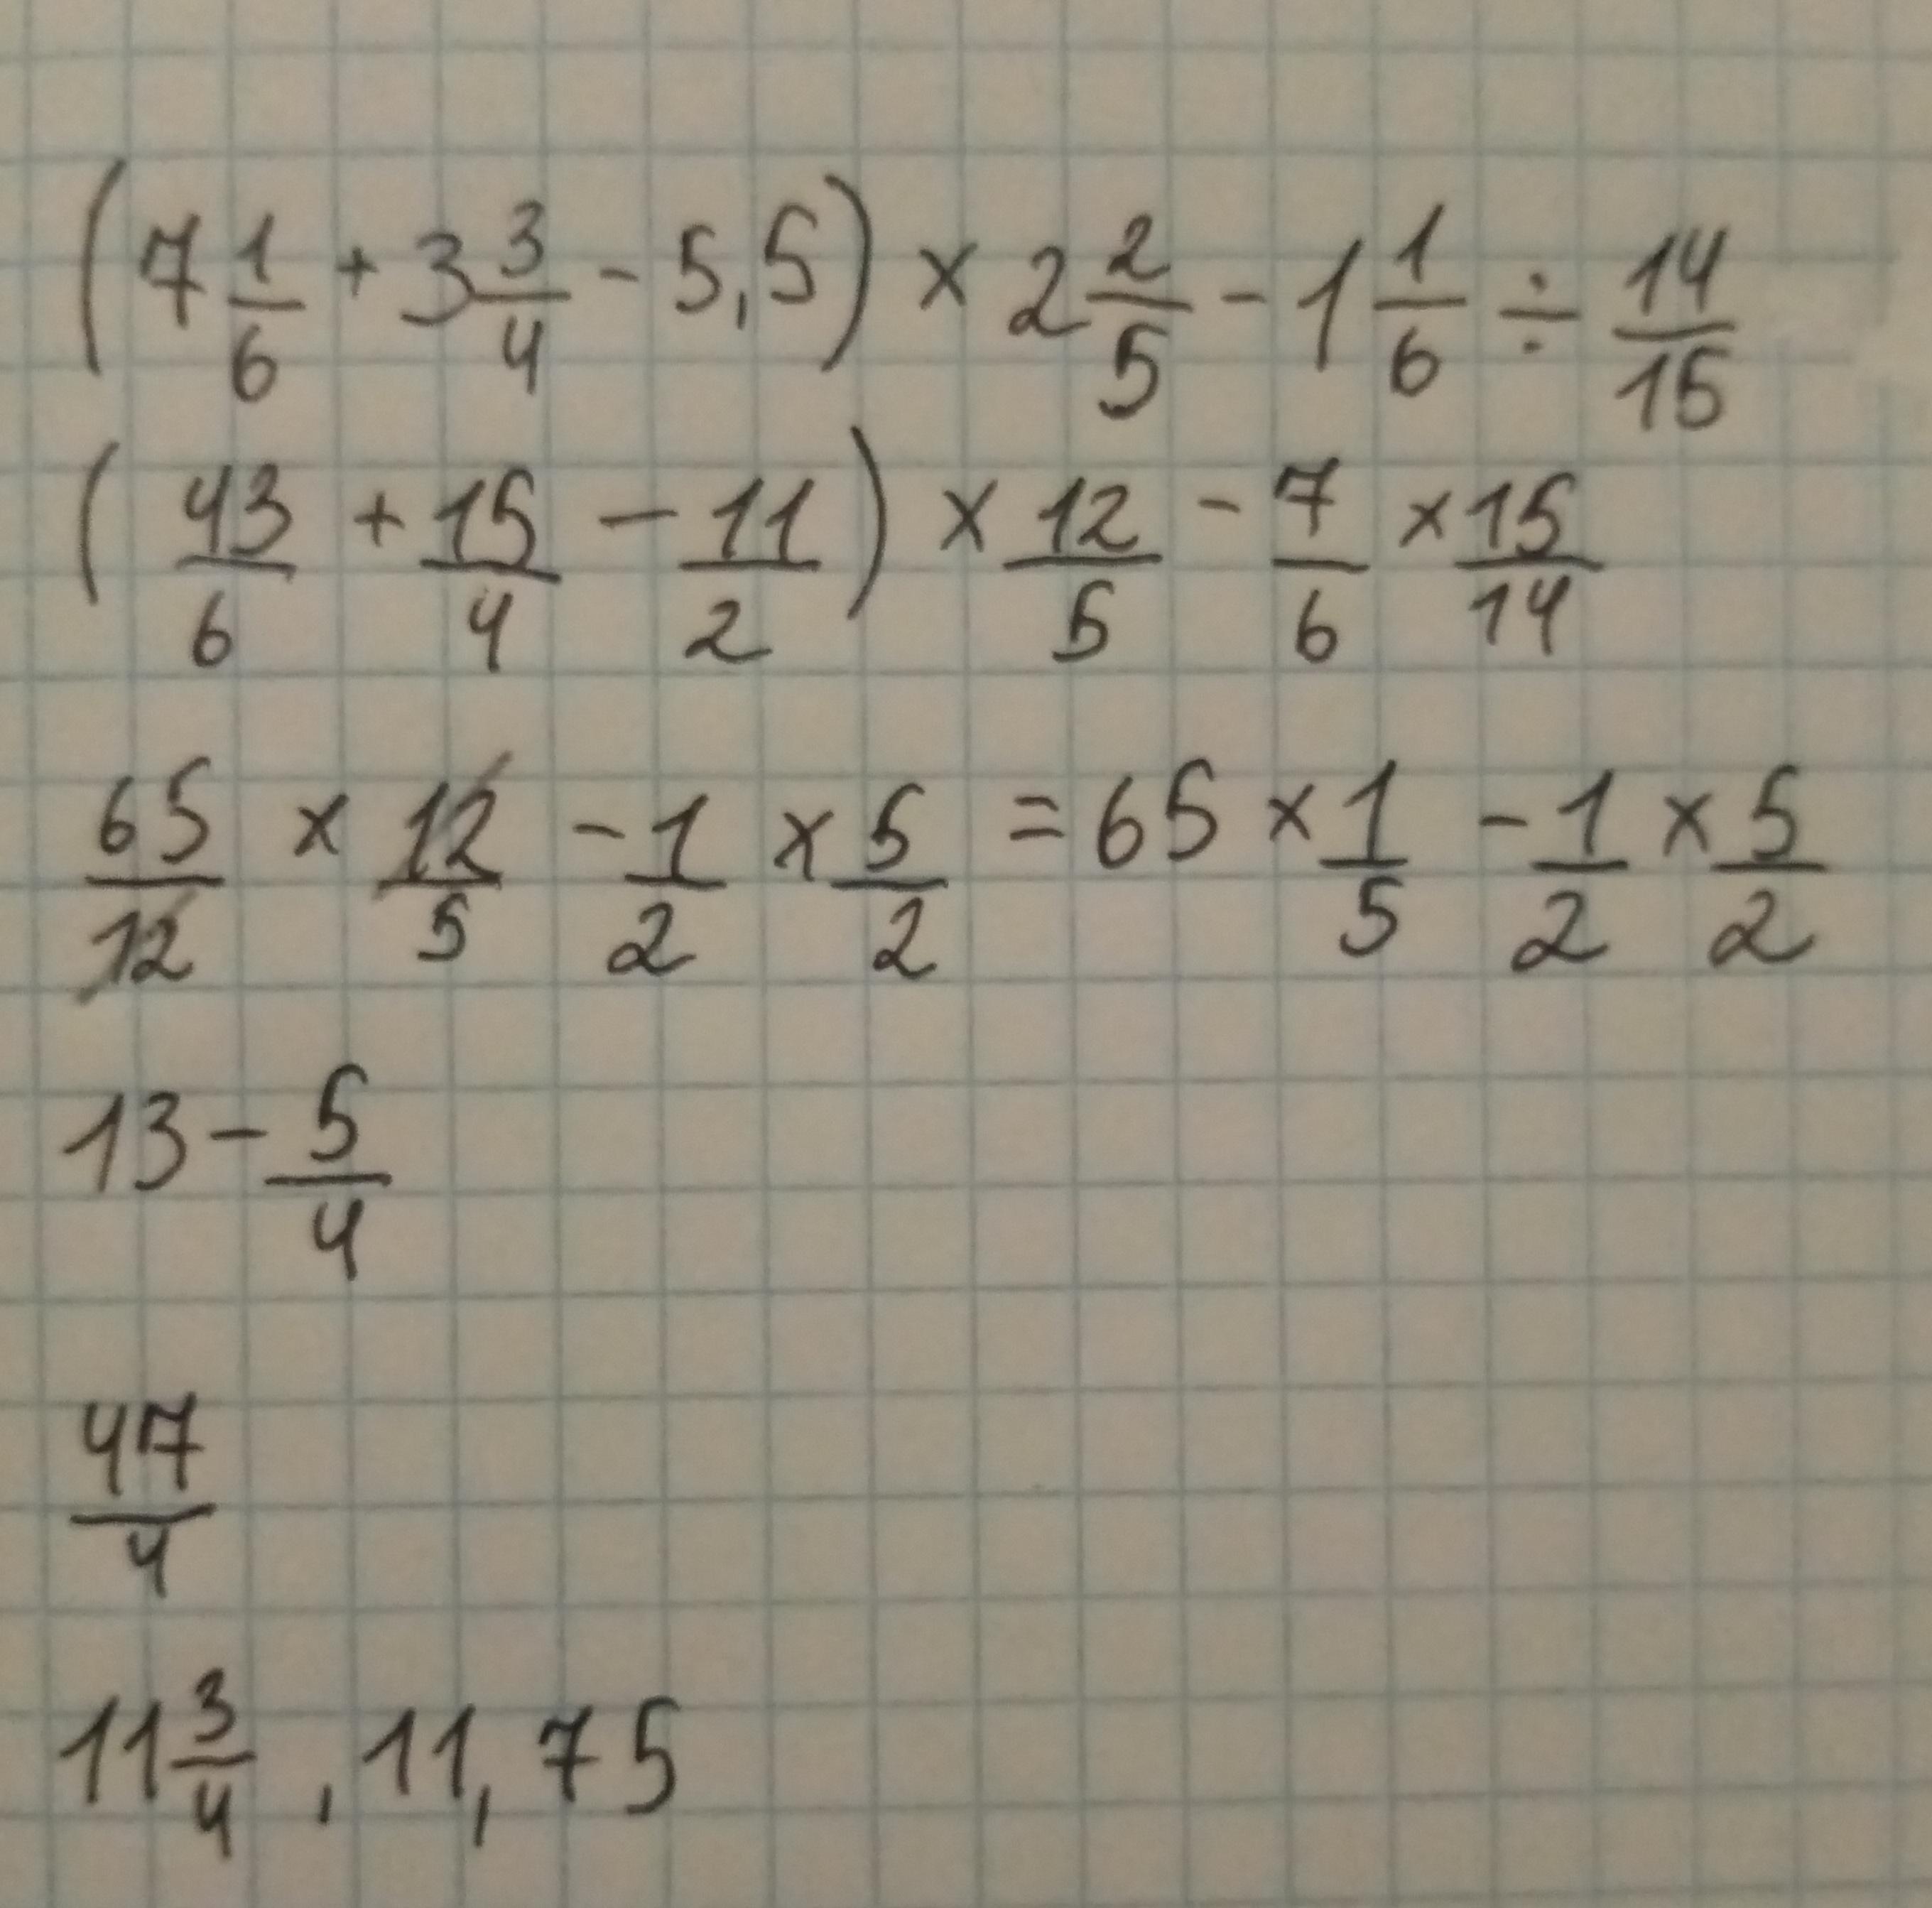 (7 1/6 + 3 3/4 - 5,5) × 2 2/5 - 1 1/6 ÷ 14/15
(43/6 + 15/4 - 11/2) × 12/5 - 7/6 × 15/14
65/12 × 12/5 - 1/2 × 5/2 = 65 × 1/5 - 1/2 × 5/2
13 - 5/4
47/4
11 3/4 , 11,75